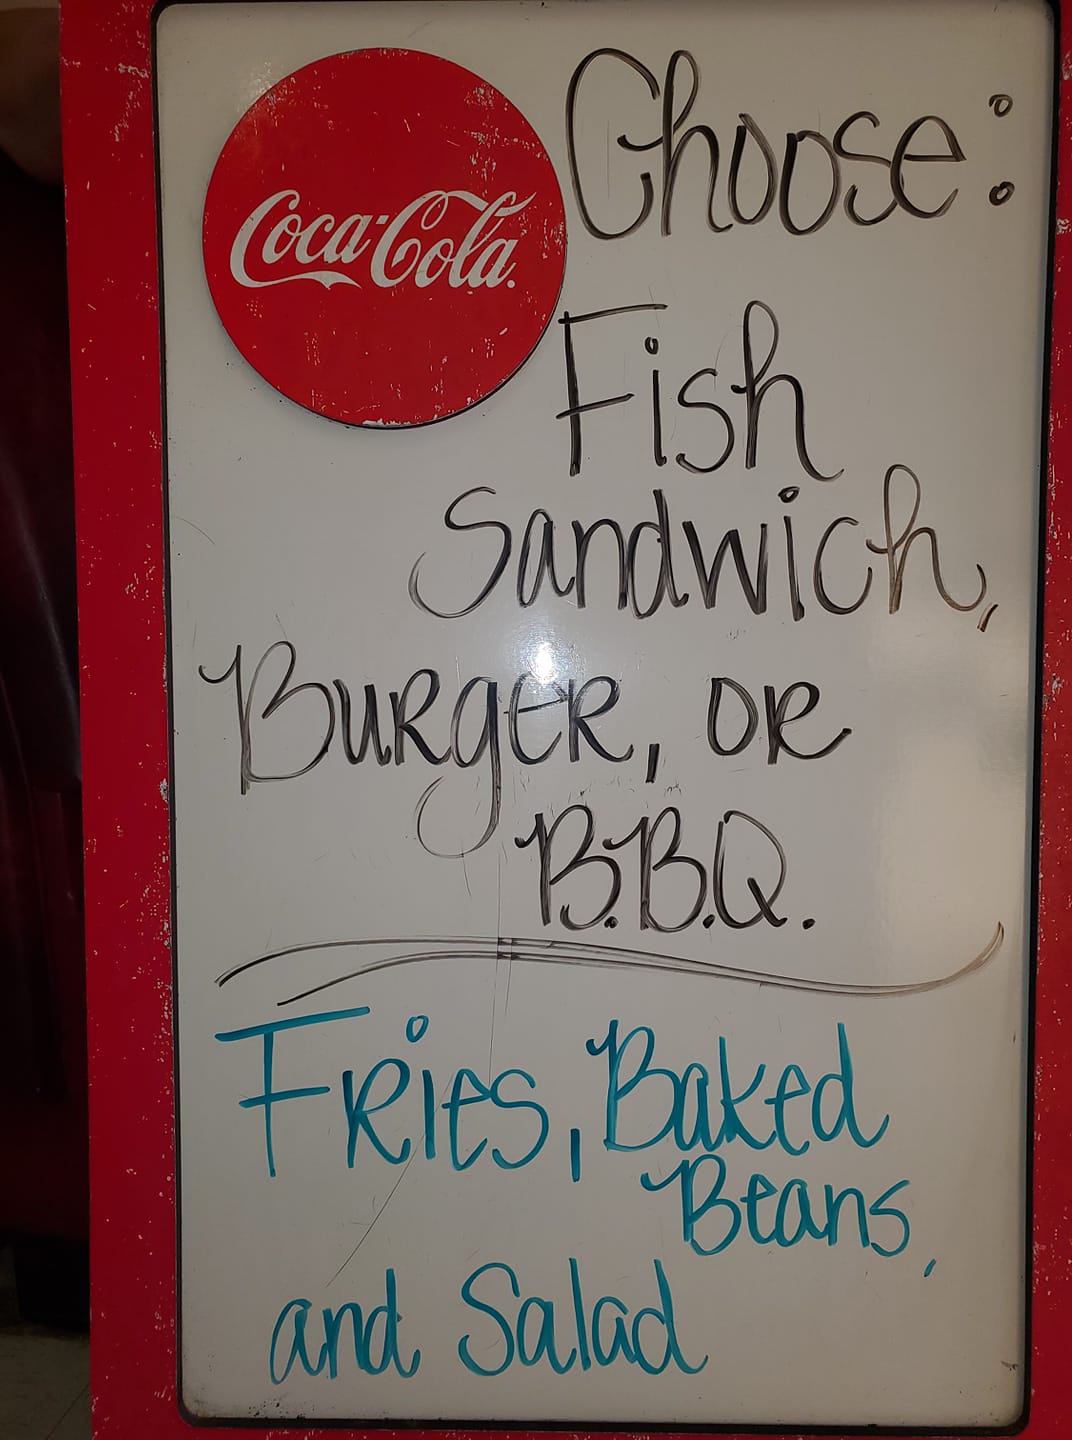 Coca-Cola
Choose:
Fish
Sandwich,
Burger, or
B.B.Q.
Fries, Baked
Beans,
and Salad